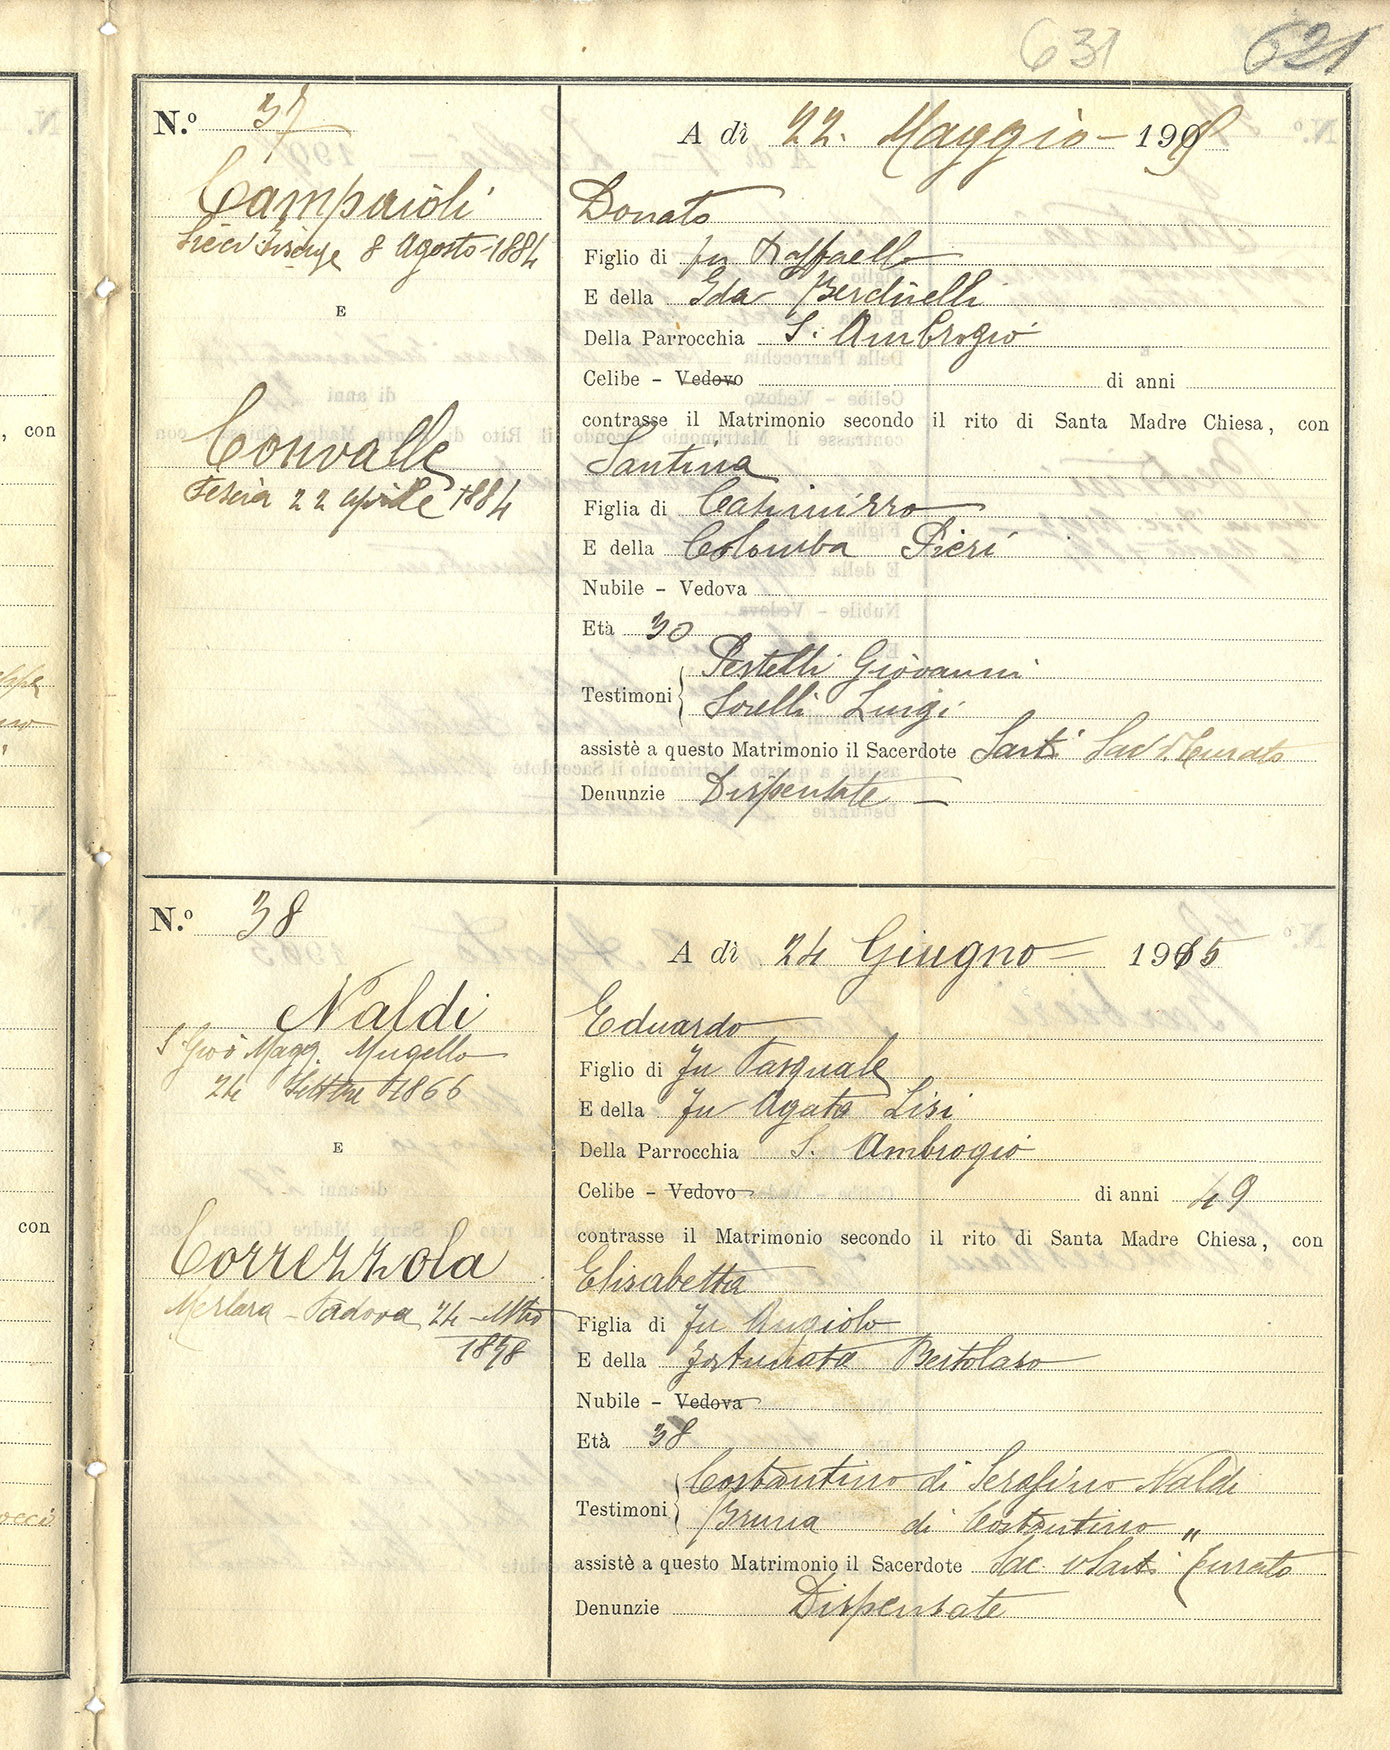 631 621
N.º 37
Campaioli
8 Agosto 1884
E
Convalle
Pescia 22 aprile 1884
A dì 22. Maggio 190
Donato
Figlio di fu Raffaello
E della Ida Berchielli
Della Parrocchia S. Ambrogio
Celibe - Vedovo di anni
contrasse il Matrimonio secondo il rito di Santa Madre Chiesa, con
Santina
Figlia di Casimirro
E della Colomba Pieri
Nubile - Vedova
Età 30
Testimoni Pestelli Giovanni
Sorelli Luigi
assistè a questo Matrimonio il Sacerdote Sarti Sac. Curato
Denunzie Dispensate
N.º 38
Naldi
S Gio Magg. Mugello
24 1866
E
Correzzola
Merlara - Padova 24
1878
A dì 24 Giugno 1915
Eduardo
Figlio di fu Pasquale
E della fu Agata Lisi
Della Parrocchia S. Ambrogio
Celibe - Vedovo di anni 49
contrasse il Matrimonio secondo il rito di Santa Madre Chiesa, con
Elisabetta
Figlia di fu Angiolo
E della Fortunata Bertolaso
Nubile - Vedova
Età 38
Testimoni Costantino di Serafino Naldi
Bruna di Costantino "
assistè a questo Matrimonio il Sacerdote Sac. Sarti Curato
Denunzie Dispensate
, con
con